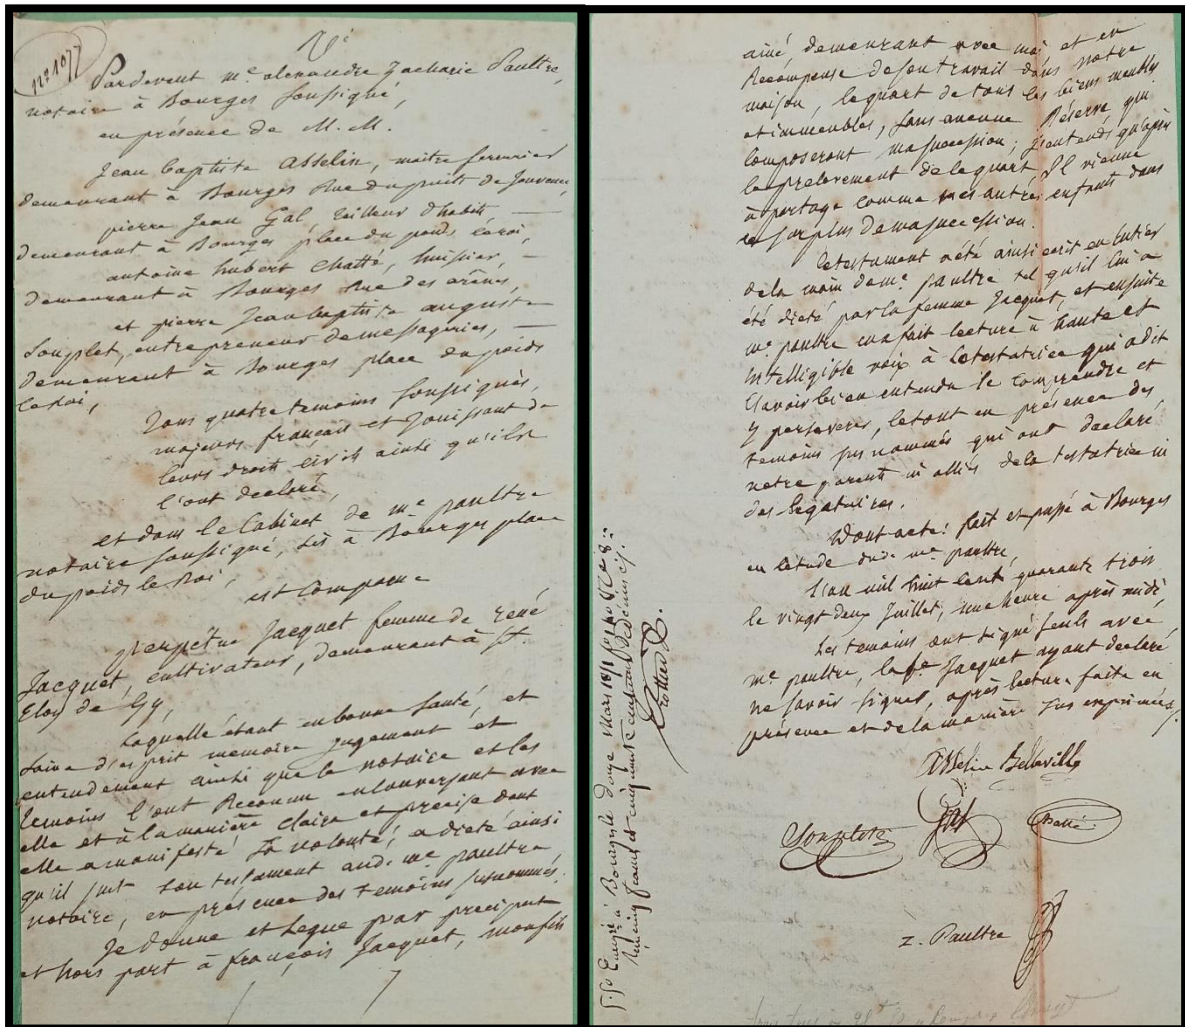 n° 1077
Pardevant me alexandre Zacharie Paultre,
notaire à Bourges soussigné,
en présence de M. M.
Jean baptiste asselin, maitre serrurier
demeurant à Bourges Rue du puits de Jouvence,
pierre Jean Gal tailleur d'habits
demeurant à Bourges place du poids le roi,
antoine hubert Chatté, huissier,
demeurant à Bourges Rue des arênes,
et pierre Jean baptiste auguste
Souplet, entrepreneur de messageries,
demeurant à Bourges place du poids
le Roi,
Tous quatre temoins soussignés,
majeurs français et Jouissant de
leurs droits civils ainsi qu'ils
l'ont declaré,
et dans le Cabinet de me paultre
notaire soussigné, sis à Bourges place
du poids le Roi,
est Comparue
perpétue Jacquet femme de rené
Jacquet, cultivateur, demeurant à St.
Eloy de Gy,
Laquelle étant en bonne santé, et
saine d'esprit memoire jugement et
entendement ainsi que le notaire et les
temoins l'ont Reconnu en conversant avec
elle et à la manière claire et precise dont
elle a manifesté sa volonté, a dicté ainsi
qu'il suit son testament aud. me paultre
notaire, en présence des temoins susnommés.
Je donne et Legue par preciput
et hors part à françois Jacquet, mon fils
ainé, demeurant avec moi et en
Recompense de son travail dans notre
maison, le quart de tous les biens meubles
et immeubles, sans aucune Réserve qui
composeront ma succession; j'entends qu'après
le prelevement de le quart Il vienne
à partage comme mes autres enfants dans
le surplus de ma succession.
Ce testament a été ainsi ecrit en entier
de la main de me. paultre tel qu'il lui a
été dicté par la femme Jacquet, et ensuite
me paultre en a fait lecture à haute et
intelligible voix à la testatrice qui a dit
l'avoir bien entendu le comprendre et
y perseverer, le tout en présence des
temoins sus nommés qui ont declaré
n'etre parents ni alliés de la testatrice ni
des légataires.
Dont acte: fait et passé à Bourges
en l'etude dud. me paultre,
L'an mil huit cent quarante trois
le vingt deux Juillet, une heure après midi,
Les temoins ont signé seuls avec
me paultre, la fe Jacquet ayant declaré
ne savoir signer, après lecture faite en
présence et de la manière sus exprimées.
Asselin Belleville
Souplet Gal Chatté
Z. Paultre
Enregistré à Bourges le douze Mars 1851